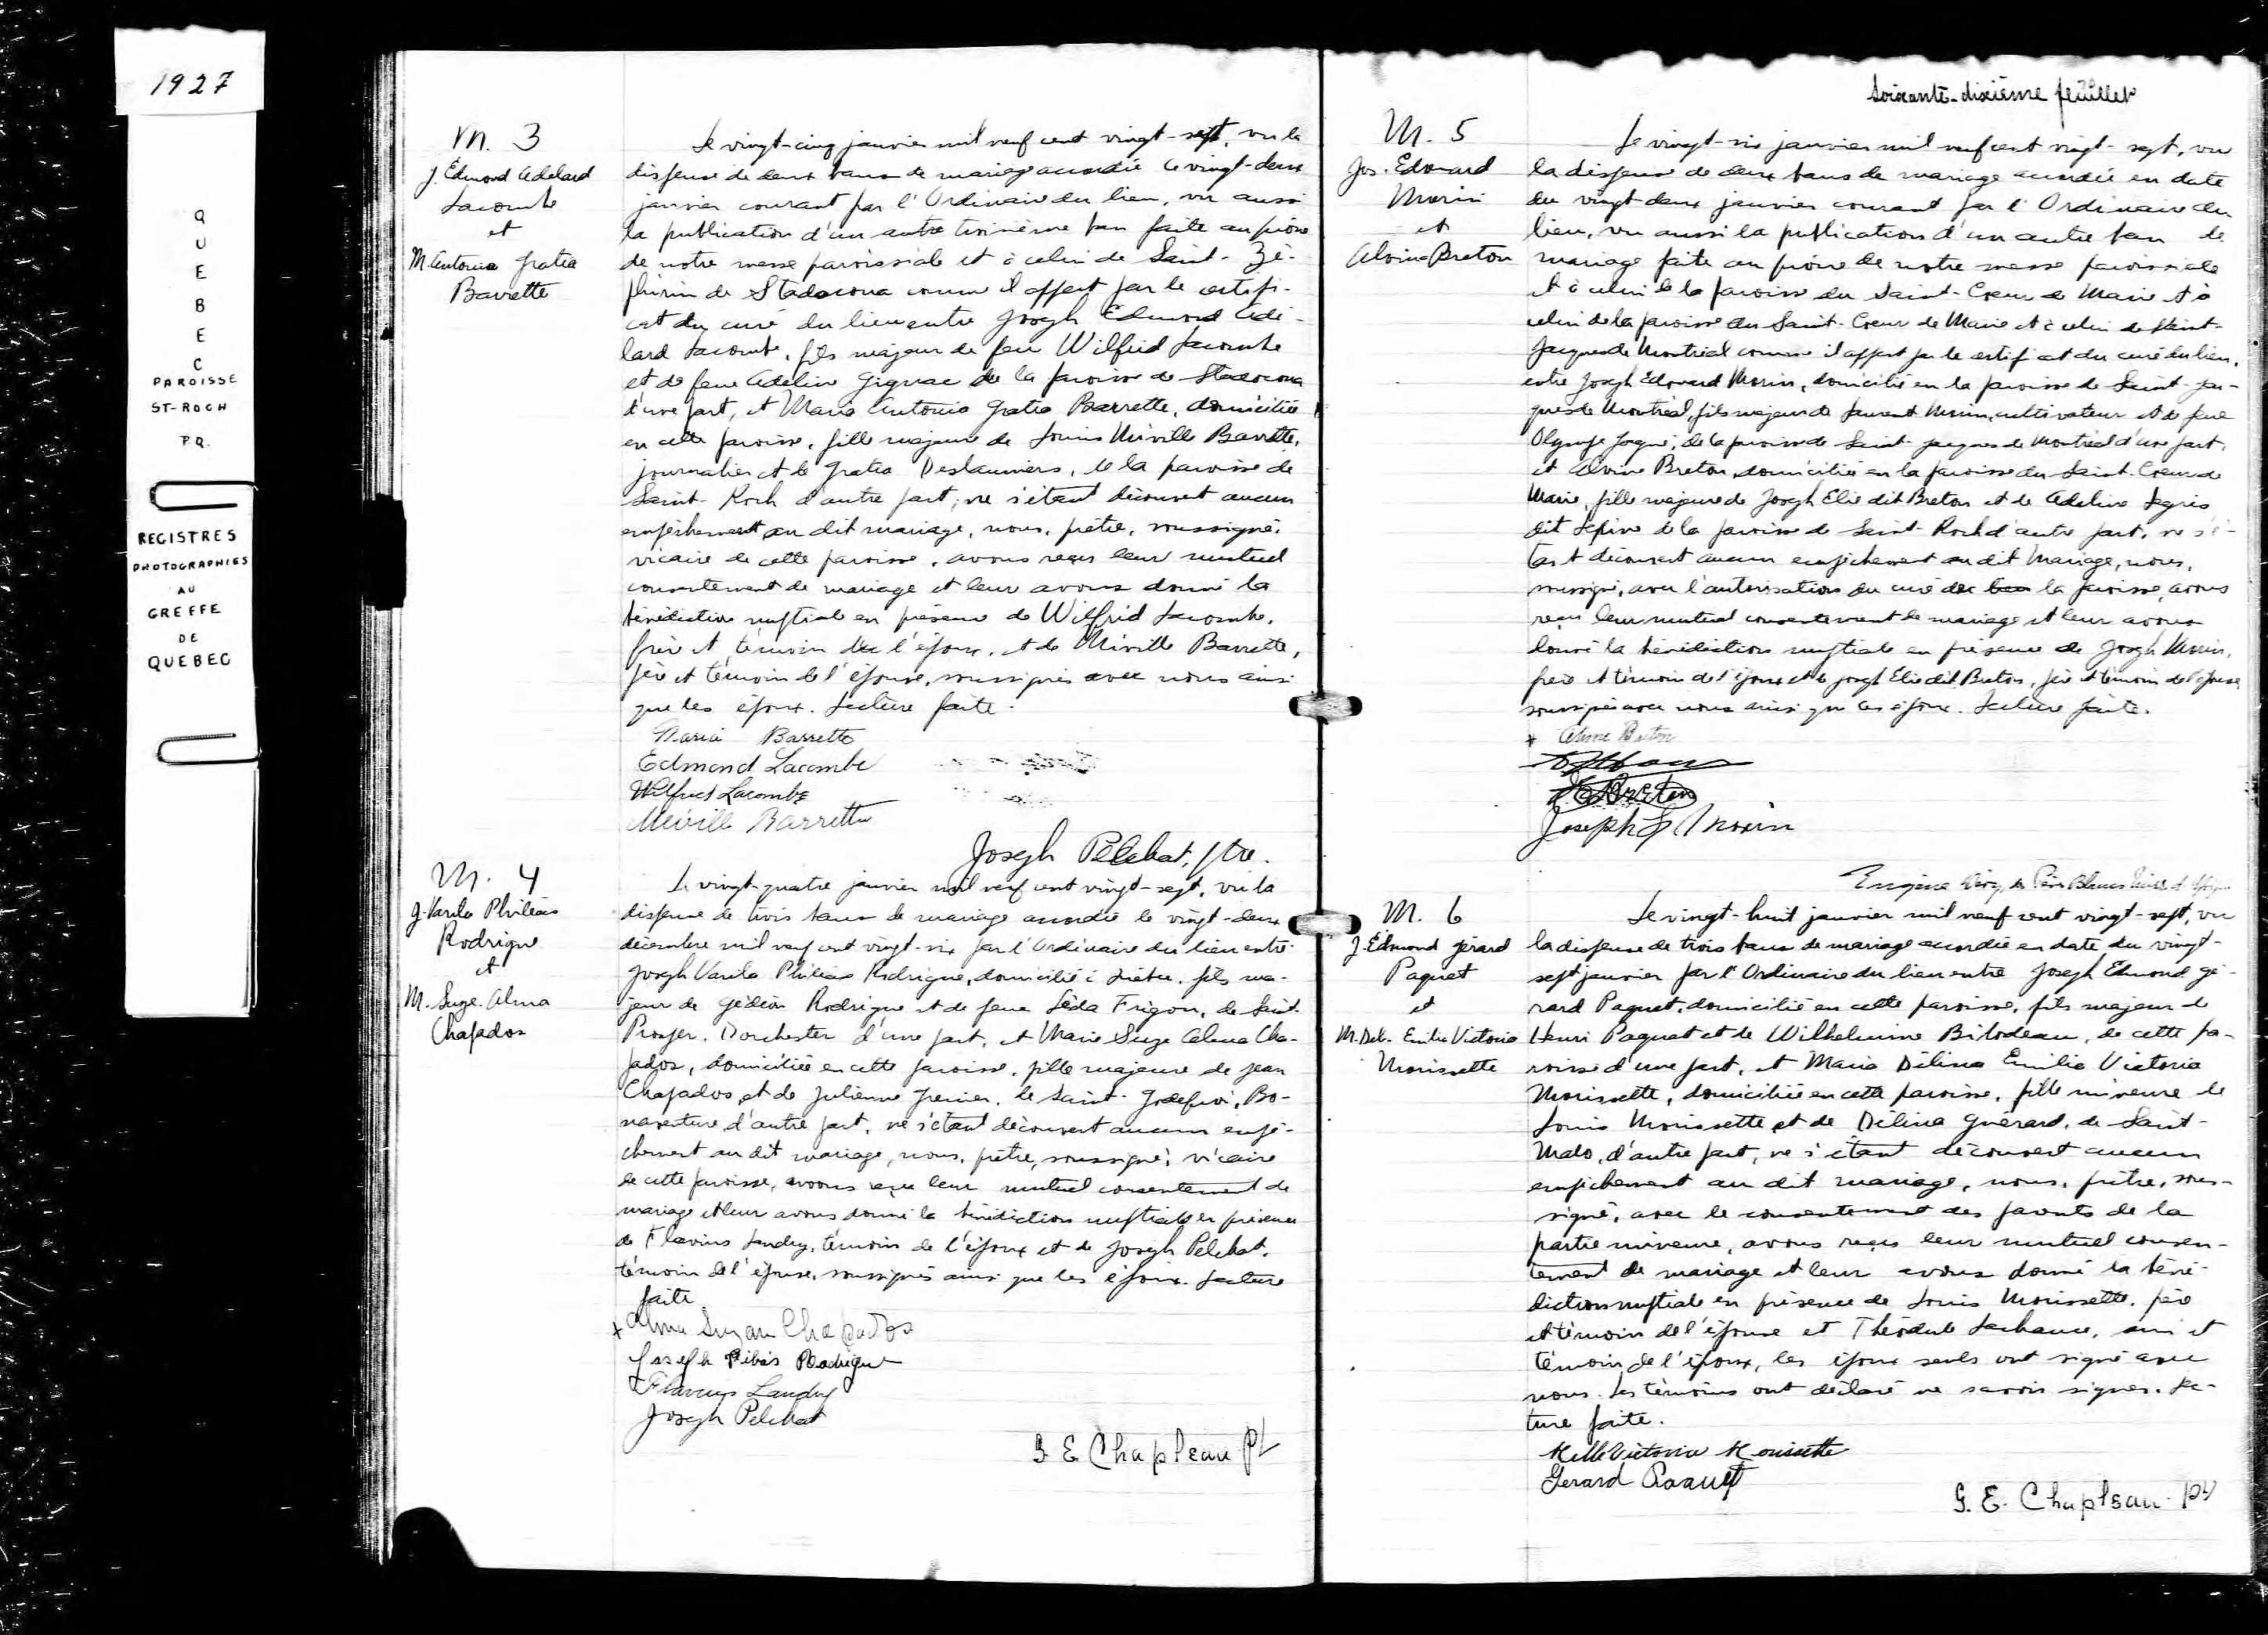 1927
QUEBEC
PAROISSE
ST-ROCH
P.Q.
REGISTRES
PHOTOGRAPHIES
AU
GREFFE
DE
QUEBEC
M. 3
J. Edmond Adelard
Lacombe
et
M. Antonia Gratia
Barrette
Le vingt-cinq janvier mil neuf cent vingt-sept, vu la
dispense de deux bans de mariage accordée le vingt-deux
janvier courant par l'Ordinaire du lieu, vu aussi
la publication d'un autre troisième ban faite au prône
de notre messe paroissiale et à celui de Saint-Zé-
phirin de Stadacona comme il appert par le certifi-
cat du curé du lieu entre Joseph Edmond Adé-
lard Lacombe, fils majeur de feu Wilfrid Lacombe
et de feue Adeline Gignac de la paroisse de Stadacona
d'une part, et Maria Antonia Gratia Barrette, domiciliée
en cette paroisse, fille majeure de Louis Miville Barrette,
journalier et de Gratia Deslauriers, de la paroisse de
Saint-Roch d'autre part; ne s'étant découvert aucun
empêchement au dit mariage, nous, prêtre, soussigné,
vicaire de cette paroisse, avons reçu leur mutuel
consentement de mariage et leur avons donné la
bénédiction nuptiale en présence de Wilfrid Lacombe,
frère et témoin de l'époux, et de Miville Barrette,
père et témoin de l'épouse, soussignés avec nous ainsi
que les époux. Lecture faite.
Maria Barrette
Edmond Lacombe
Wilfrid Lacombe
Miville Barrette
Joseph Pelchat, ptre.
M. 4
J. Varila Philéas
Rodrigue
et
M. Suze. Alma
Chapados
Le vingt-quatre janvier mil neuf cent vingt-sept, vu la
dispense de trois bans de mariage accordée le vingt-deux
décembre mil neuf cent vingt-six par l'Ordinaire du lieu entre
Joseph Varila Philéas Rodrigue, domicilié à fils ma-
jeur de Gédéon Rodrigue et de feue Léda Frigon, de Saint-
Prosper, Dorchester d'une part, et Marie Suze Alma Cha-
pados, domiciliée en cette paroisse, fille majeure de Jean
Chapados, et de Julienne Grenier, de Saint-Godefroi, Bo-
naventure, d'autre part, ne s'étant découvert aucun empê-
chement au dit mariage, nous, prêtre, soussigné, vicaire
de cette paroisse, avons reçu leur mutuel consentement de
mariage et leur avons donné la bénédiction nuptiale en présence
de Flavius Landry, témoin de l'époux et de Joseph Pelchat,
témoin de l'épouse, soussignés ainsi que les époux. Lecture
faite
x Alma Suzan Chapados
Joseph Rodrigue
Flavius Landry
Joseph Pelchat
G. E. Chapleau Pt
Soixante-dixième feuillet
M. 5
Jos. Edouard
Morin
et
Alvina Breton
Le vingt-six janvier mil neuf cent vingt-sept, vu
la dispense de deux bans de mariage accordée en date
du vingt-deux janvier courant par l'Ordinaire du
lieu, vu aussi la publication d'un autre ban de
mariage faite au prône de notre messe paroissiale
et à celui de la paroisse du Saint-Coeur de Marie et à
celui de la paroisse du Saint-Coeur de Marie et à celui de Saint-
Jacques de Montréal comme il appert par le certificat du curé du lieu,
entre Joseph Edouard Morin, domicilié en la paroisse de Saint-Jac-
ques de Montréal, fils majeur de Laurent Morin, cultivateur et de feue
Olympe de la paroisse de Saint-Jacques de Montréal d'une part,
et Alvina Breton, domiciliée en la paroisse du Saint-Coeur de
Marie, fille majeure de Joseph Elie dit Breton et de Adeline Legris
dit Lépine de la paroisse de Saint-Roch d'autre part, ne s'é-
tant découvert aucun empêchement au dit mariage, nous,
soussigné, avec l'autorisation du curé de la paroisse, avons
reçu leur mutuel consentement de mariage et leur avons
donné la bénédiction nuptiale en présence de Joseph Morin,
frère et témoin de l'époux et de Joseph Elie dit Breton, père et témoin de l'épouse,
soussignés avec nous ainsi que les époux. Lecture faite.
x Alvine Breton
Breton
Joseph L Morin
Eugène des Pères Blancs
M. 6
J. Edmond Gérard
Paquet
et
M. Del. Emilia Victoria
Morissette
Le vingt-huit janvier mil neuf cent vingt-sept, vu
la dispense de trois bans de mariage accordée en date du vingt-
sept janvier par l'Ordinaire du lieu entre Joseph Edmond Gé-
rard Paquet, domicilié en cette paroisse, fils majeur de
Henri Paquet et de Wilhelmine Bilodeau, de cette pa-
roisse d'une part, et Maria Délina Emilia Victoria
Morissette, domiciliée en cette paroisse, fille mineure de
Louis Morissette et de Délina Guérard, de Saint-
Malo, d'autre part, ne s'étant découvert aucun
empêchement au dit mariage, nous, prêtre, sous-
signé, avec le consentement des parents de la
partie mineure, avons reçu leur mutuel consen-
tement de mariage et leur avons donné la béné-
diction nuptiale en présence de Louis Morissette, père
et témoin de l'épouse et Théodule Lachance, ami et
témoin de l'époux, les époux seuls ont signé avec
nous. Les témoins ont déclaré ne savoir signer. Lec-
ture faite.
Melle Victoria Morissette
Gerard Paquet
G. E. Chapleau ptr